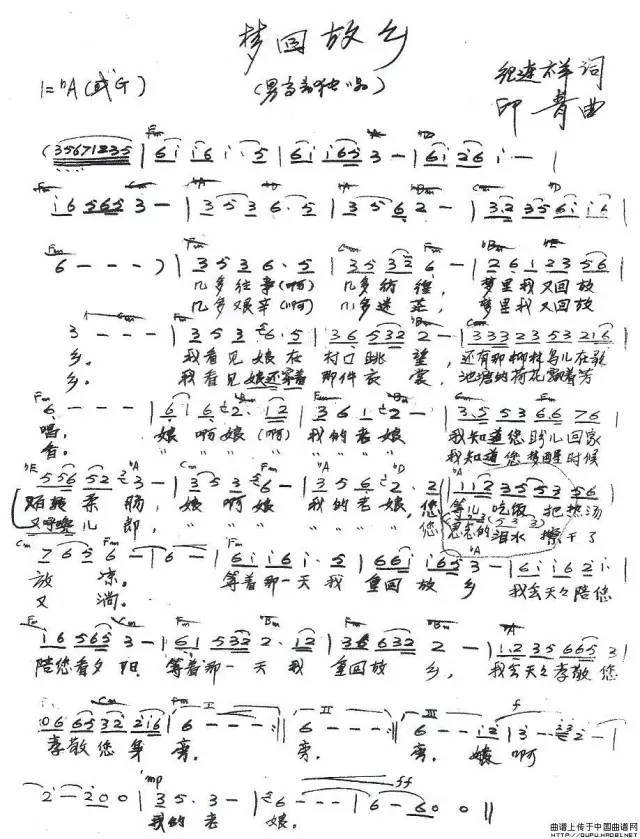 梦回故乡
(男高音独唱)
1=bA(或G)
纪连祥 词
印青 曲
(35671235 | 6116 1·5 | 61165 3 - | 61261 - |
16 565 3 - | 353 6·5 | 356 2 - | 3·2 356116 |
6 - - - ) | 353 6·5 | 3532 6 - | 261 2356 |
几多往事(啊) 几多彷徨, 梦里我又回故
几多艰辛(啊) 几多迷茫, 梦里我又回故
3 - - - | 353 6·5 | 36532 2 - | 3332353216 |
乡。 我看见娘在 村口眺望, 还有那柳林鸟儿在歌
乡。 我看见娘还穿着 那件衣裳, 池塘的荷花飘着芳
6 - - - | 616 2·12 | 361 2 - | 3·55366 76 |
唱, 娘啊娘(啊) 我的老娘 我知道您盼儿回家
香。 " " " " " " " 我知道您梦醒时候
55652 3 - | 353 6 - | 356 2·2 | 112355356 |
柔肠, 娘啊娘 我的老娘 您 等儿吃饭 把热汤
又呼唤儿郎, " " " " " " " 您 思念的泪水 擦干了
7656 - | 6 - | 61165 1·5 | 661165 3 - | 6116 261 |
放凉。 等着那一天我 重回故乡 我会天々陪您
又淌。
16 565 3 - | 61532 2·12 | 356632 2 - | 1·235 6653 |
陪您看夕阳 等着那一天我 重回故乡, 我会天々孝敬您
066532216 | 6 - - - :|| 6 - - - :|| 6 - - 12 | 3 - 232 - |
孝敬您身旁。 旁。 旁。 娘啊
2 - 200 | 35·3 - | 6 - - - | 6 - 600 ||
mp ff
我的老娘。
曲谱上传于中国曲谱网
HTTP://QUPU.HAOEI.NET